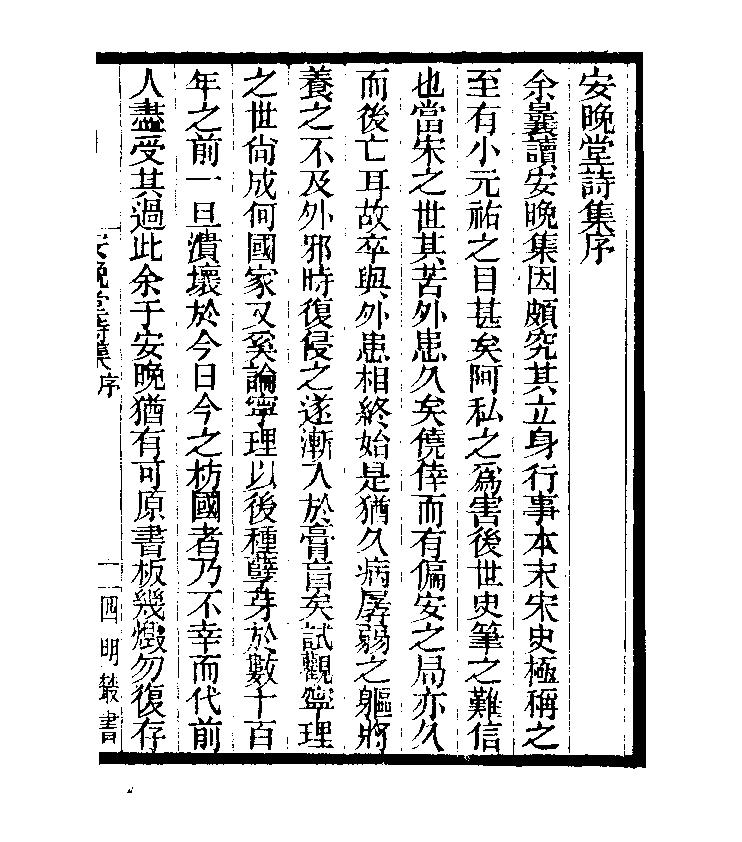 安晚堂詩集序
余曩讀安晚集因頗究其立身行事本末宋史極稱之
至有小元祐之目甚矣阿私之爲害後世史筆之難信
也當宋之世其苦外患久矣僥倖而有偏安之局亦久
而後亡耳故卒與外患相終始是猶久病孱弱之軀將
養之不及外邪時復侵之遂漸入於膏盲矣試觀寧理
之世尙成何國家又奚論寧理以後種孽芽於數十百
年之前一旦潰壞於今日今之枋國者乃不幸而代前
人盡受其過此余于安晚猶有可原書板幾燬勿復存
安晚堂詩集序
一
四明叢書